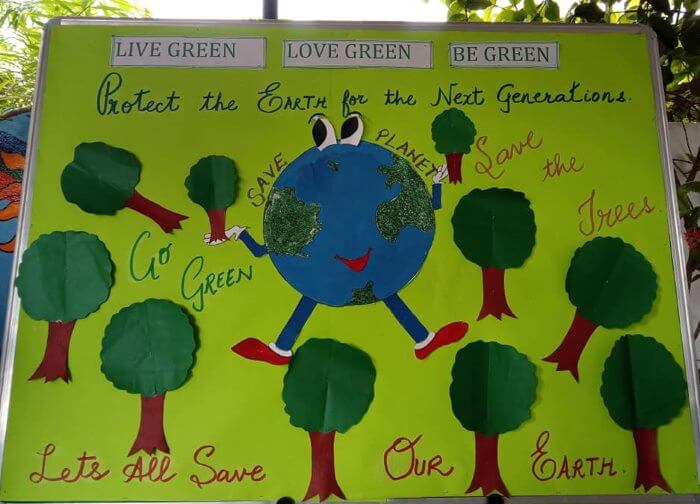 LIVE GREEN LOVE GREEN BE GREEN
Protect the EARTH for the Next Generations.
SAVE PLANET
Save
the
Trees
Go
GREEN
Lets All Save Our EARTH.